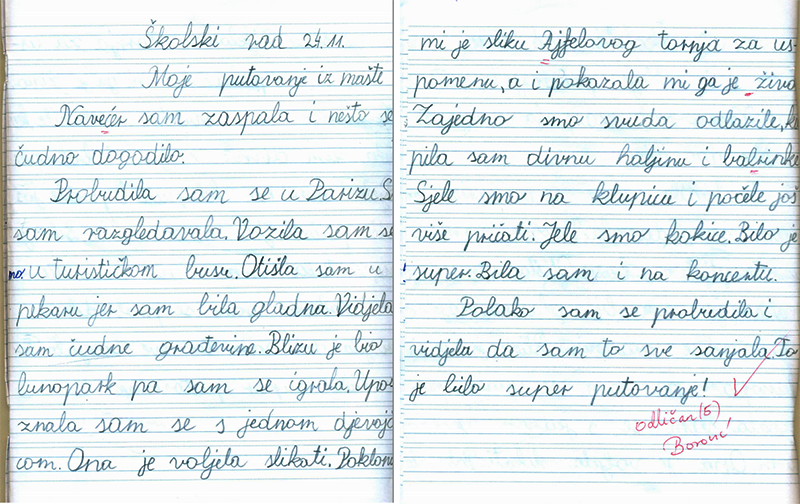 Školski rad 24.11.
Moje putovanje iz mašte
Navećer sam zaspala i nešto se
čudno dogodilo.
Probudila sam se u Parizu. S
sam razgledavala. Vozila sam se
na u turističkom busu. Otišla sam u
pekaru jer sam bila gladna. Vidjela
sam čudne građevine. Blizu je bio
lunapark pa sam se igrala. Upo
znala sam se s jednom djevojč
com. Ona je voljela slikati. Poklonil
mi je sliku Ajfelovog tornja za us-
pomenu, a i pokazala mi ga je živo
Zajedno smo svuda odlazile, k
pila sam divnu haljinu i balrinke
Sjele smo na klupicu i počele još
više pričati. Jele smo kokice. Bilo je
super. Bila sam i na koncertu.
Polako sam se probudila i
vidjela da sam to sve sanjala. To
je bilo super putovanje!
odličan (5)